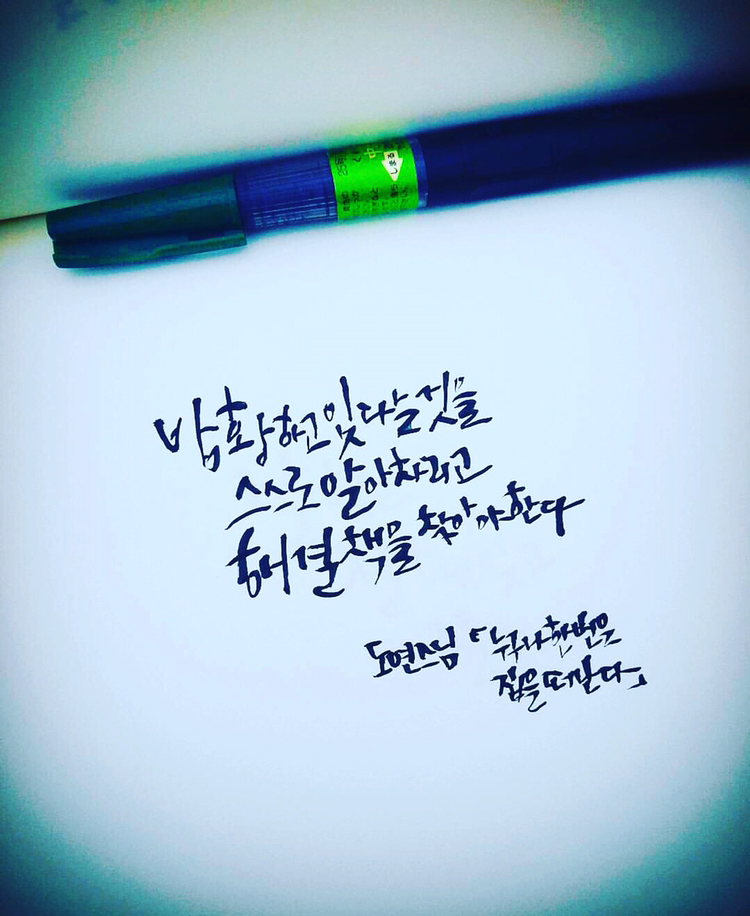 방황하고 잇다는 것을
스스로 알아차리고
해결책을 찾아야한다
도연스님 「누구나 한번은
집을 떠난다」